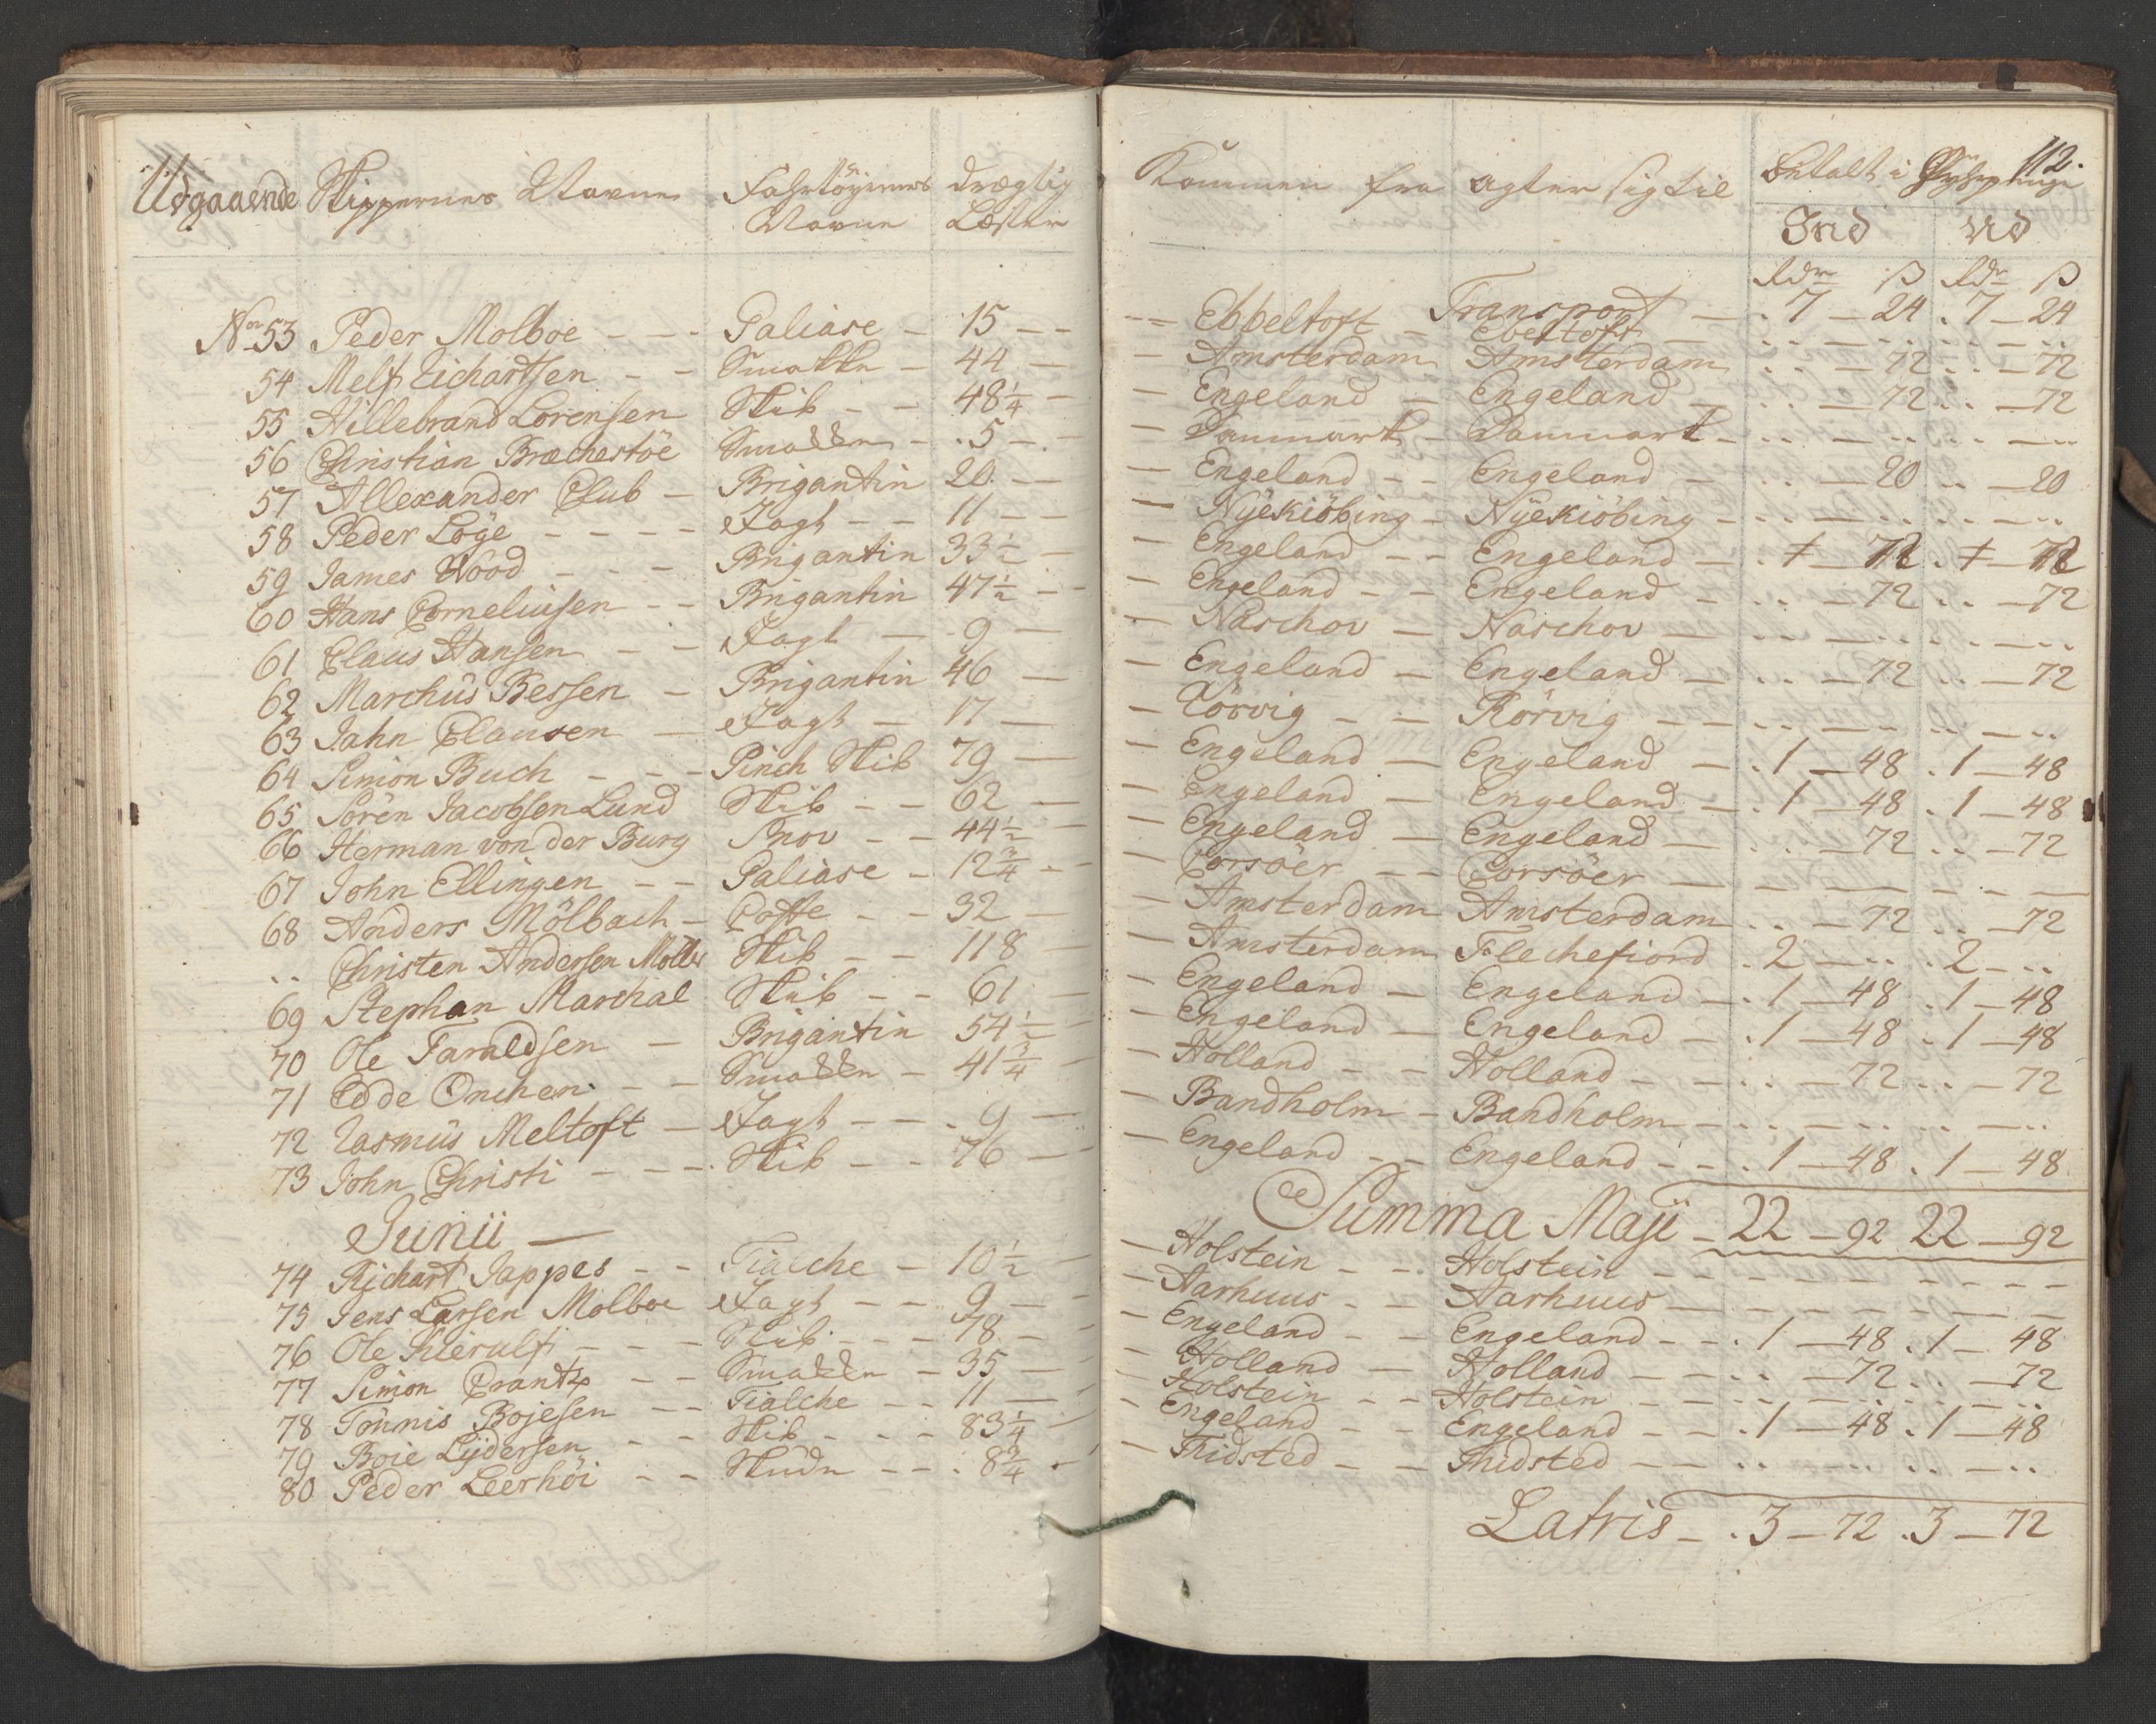 Udgaaende Skippernes Navne Fahrtöyernes drægtig Kommen fra agter sig til Betalt i 112.
Navne Læster Ind Ud
Rdr ß Rdr ß
Transport — 7 — 24 . 7 — 24
No 53 Peder Molboe — Galiase — 15 — Ebbeltoft — Ebeltoft — .. — .. .. — ..
54 Melf Richartsen — Smakke — 44 — Amsterdam Amsterdam .. — 72 .. — 72
55 Hillebrand Lorensen Skib — 48 1/4 — Engeland — Engeland — .. — 72 .. — 72
56 Christian Bræchestöe Smakke — . 5 — Danmark — Danmark — .. — .. .. — ..
57 Allexander Club — Brigantin 20 — Engeland — Engeland — .. — 20 .. — 20
58 Peder Löye — Jagt — 11 — Nÿekiöbing — Nÿekiöbing — .. — .. .. — ..
59 James Wood — Brigantin 33 1/2 — Engeland — Engeland — . + — 72 . + — 72
60 Hans Corneliusen — Brigantin 47 1/2 — Engeland — Engeland — .. — 72 .. — 72
61 Claus Hansen — Jagt — 9 — Naschov — Naschov — .. — .. .. — ..
62 Marchus Bessen — Brigantin 46 — Engeland — Engeland — .. — 72 .. — 72
63 Jahn Clausen — Jagt — 17 — Rörvig — Rörvig — .. — .. .. — ..
64 Simon Buch — Pinch Skib 79 — Engeland — Engeland — . 1 — 48 . 1 — 48
65 Sören Jacobsen Lund Skib — 62 — Engeland — Engeland — . 1 — 48 . 1 — 48
66 Herman von der Burg Snov — 44 1/2 — Engeland — Engeland — .. — 72 .. — 72
67 John Ellingen — Galiase — 12 3/4 — Corsöer — Corsöer — — — —
68 Anders Mölbach — Coffe — 32 — Amsterdam Amsterdam .. — 72 .. — 72
.. Christen Andersen Moller Skib — 118 — Amsterdam Flechefiord . 2 — .. . 2 — ..
69 Stephan Marchal Skib — 61 — Engeland — Engeland — . 1 — 48 . 1 — 48
70 Ole Taraldsen — Brigantin 54 1/2 — Engeland — Engeland — . 1 — 48 . 1 — 48
71 Edde Onchen — Smakke — 41 3/4 — Holland — Holland — .. — 72 .. — 72
72 Rasmus Meltoft — Jagt — . 9 — Bandholm — Bandholm — .. — .. .. — ..
73 John Christi — Skib — 76 — Engeland — Engeland — . 1 — 48 . 1 — 48
Summa Maji — 22 — 92 22 — 92
Junii —
74 Richart Jappes — Tialche — 10 1/2 — Holstein — Holstein — — — —
75 Jens Larsen Molboe Jagt — 9 — Aarhuus — Aarhuus — — — —
76 Ole Kierulf — Skib — 78 — Engeland — Engeland — . 1 — 48 . 1 — 48
77 Simon Crantz — Smakke — 35 — Holland — Holland — .. — 72 .. — 72
78 Tönnis Bojesen — Tialche — 11 — Holstein — Holstein — .. — .. .. — ..
79 Boie Lÿdersen — Skib — 83 1/4 — Engeland — Engeland — . 1 — 48 . 1 — 48
80 Peder Leerhöi — Skude — . 8 3/4 — Thidsted — Thidsted — .. — .. .. — ..
Latris — . 3 — 72 . 3 — 72